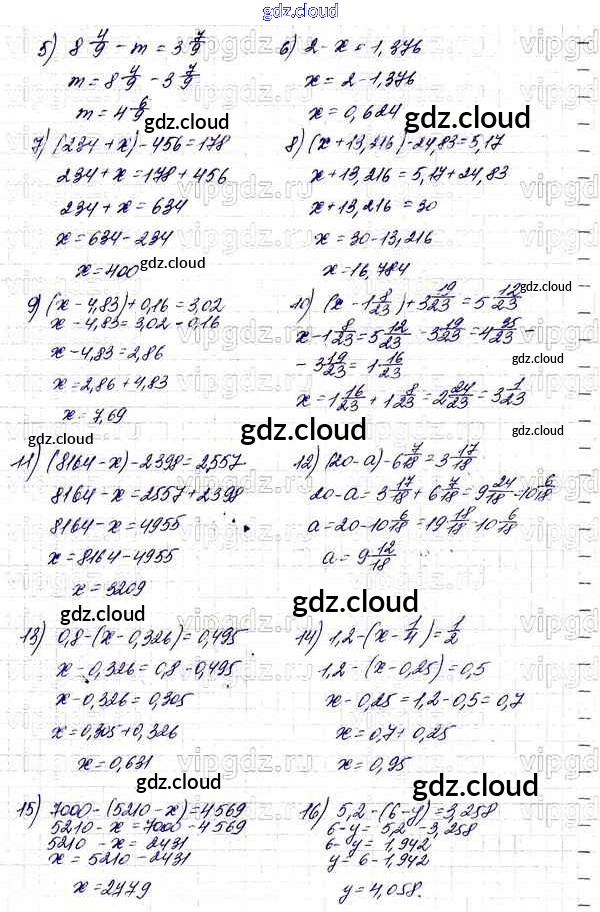 gdz.cloud
5) 8 4/9 - m = 3 7/9
m = 8 4/9 - 3 7/9
m = 4 6/9
6) 2 - x = 1,376
x = 2 - 1,376
x = 0,624
gdz.cloud
gdz.cloud
7) (234 + x) - 456 = 178
234 + x = 178 + 456
234 + x = 634
x = 634 - 234
x = 400
gdz.cloud
8) (x + 13,216) - 24,83 = 5,17
x + 13,216 = 5,17 + 24,83
x + 13,216 = 30
x = 30 - 13,216
x = 16,784
9) (x - 4,83) + 0,16 = 3,02
x - 4,83 = 3,02 - 0,16
x - 4,83 = 2,86
x = 2,86 + 4,83
x = 7,69
gdz.cloud
10) (x - 1 8/23) + 3 19/23 = 5 12/23
x - 1 8/23 = 5 12/23 - 3 19/23 = 4 35/23 -
- 3 19/23 = 1 16/23
gdz.cloud
x = 1 16/23 + 1 8/23 = 2 24/23 = 3 1/23
gdz.cloud
gdz.cloud
gdz.cloud
11) (8164 - x) - 2398 = 2557
8164 - x = 2557 + 2398
8164 - x = 4955
x = 8164 - 4955
x = 3209
12) (20 - a) - 6 7/18 = 3 17/18
20 - a = 3 17/18 + 6 7/18 = 9 24/18 = 10 6/18
a = 20 - 10 6/18 = 19 18/18 - 10 6/18
a = 9 12/18
gdz.cloud
gdz.cloud
gdz.cloud
13) 0,8 - (x - 0,326) = 0,495
x - 0,326 = 0,8 - 0,495
x - 0,326 = 0,305
x = 0,305 + 0,326
x = 0,631
14) 1,2 - (x - 1/4) = 1/2
1,2 - (x - 0,25) = 0,5
x - 0,25 = 1,2 - 0,5 = 0,7
x = 0,7 + 0,25
x = 0,95
gdz.cloud
gdz.cloud
15) 7000 - (5210 - x) = 4569
5210 - x = 7000 - 4569
5210 - x = 2431
x = 5210 - 2431
x = 2779
16) 5,2 - (6 - y) = 3,258
6 - y = 5,2 - 3,258
6 - y = 1,942
y = 6 - 1,942
y = 4,058.